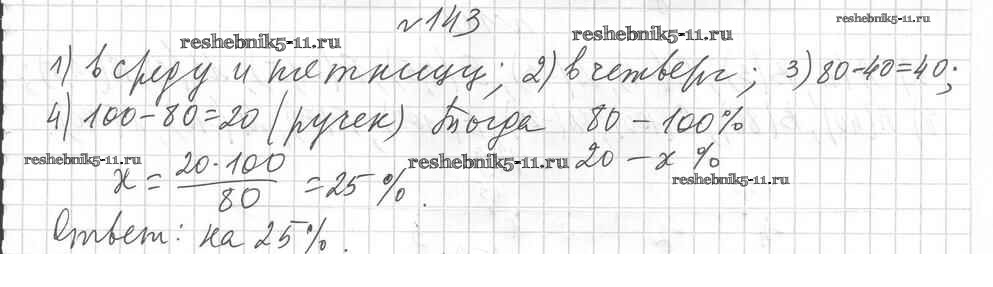 №143
reshebnik5-11.ru
reshebnik5-11.ru reshebnik5-11.ru
1) в среду и пятницу; 2) в четверг; 3) 80-40=40;
4) 100-80=20 (ручек) Тогда 80 – 100%
reshebnik5-11.ru reshebnik5-11.ru 20 – x %
x = 20·100/80 = 25%.
reshebnik5-11.ru
Ответ: на 25%.